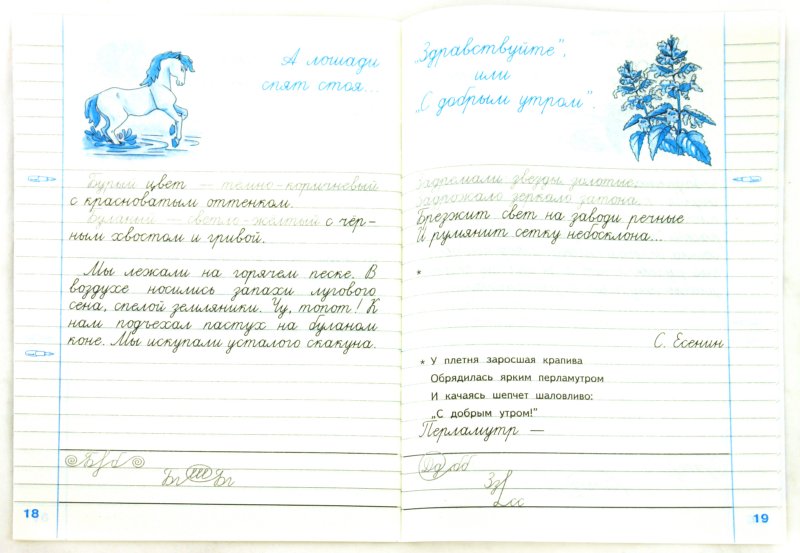 А лошади
спят стоя...
Бурый цвет — темно-коричневый
с красноватым оттенком.
Буланый — светло-жёлтый с чёр-
ным хвостом и гривой.
Мы лежали на горячем песке. В
воздухе носились запахи лугового
сена, спелой земляники. Чу, топот! К
нам подъехал пастух на буланом
коне. Мы искупали усталого скакуна.
Б б
Бг Бг
18
„Здравствуйте",
или
„С добрым утром".
Задремали звезды золотые,
Задрожало зеркало затона,
Брезжит свет на заводи речные
И румянит сетку небосклона...
*
С. Есенин
* У плетня заросшая крапива
Обрядилась ярким перламутром
И качаясь шепчет шаловливо:
„С добрым утром!"
Перламутр —
19